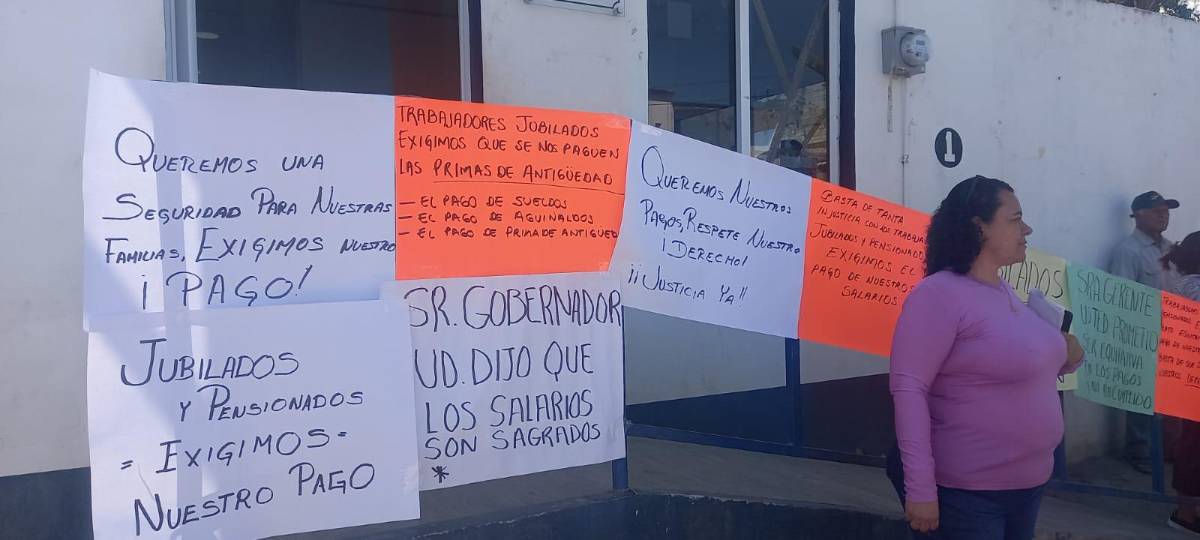 QUEREMOS UNA
SEGURIDAD PARA NUESTRAS
FAMILIAS, EXIGIMOS NUESTRO
¡ PAGO!
TRABAJADORES JUBILADOS
EXIGIMOS QUE SE NOS PAGUEN
LAS PRIMAS DE ANTIGÜEDAD
- EL PAGO DE SUELDOS
- EL PAGO DE AGUINALDOS
- EL PAGO DE PRIMA DE ANTIGÜED
QUEREMOS NUESTROS
PAGOS, RESPETE NUESTRO
¡DERECHO!
¡¡JUSTICIA YA!!
BASTA DE TANTA
INJUSTICIA CON LOS TRABAJA
JUBILADOS Y PENSIONADO
EXIGIMOS EL
PAGO DE NUESTROS
SALARIOS
JUBILADOS
Y PENSIONADOS
= EXIGIMOS=
NUESTRO PAGO
SR. GOBERNADOR
UD. DIJO QUE
LOS SALARIOS
SON SAGRADOS
*
1
SRA GERENTE
USTED PROMETIO
SER EQUITATIVA
EN LOS PAGOS